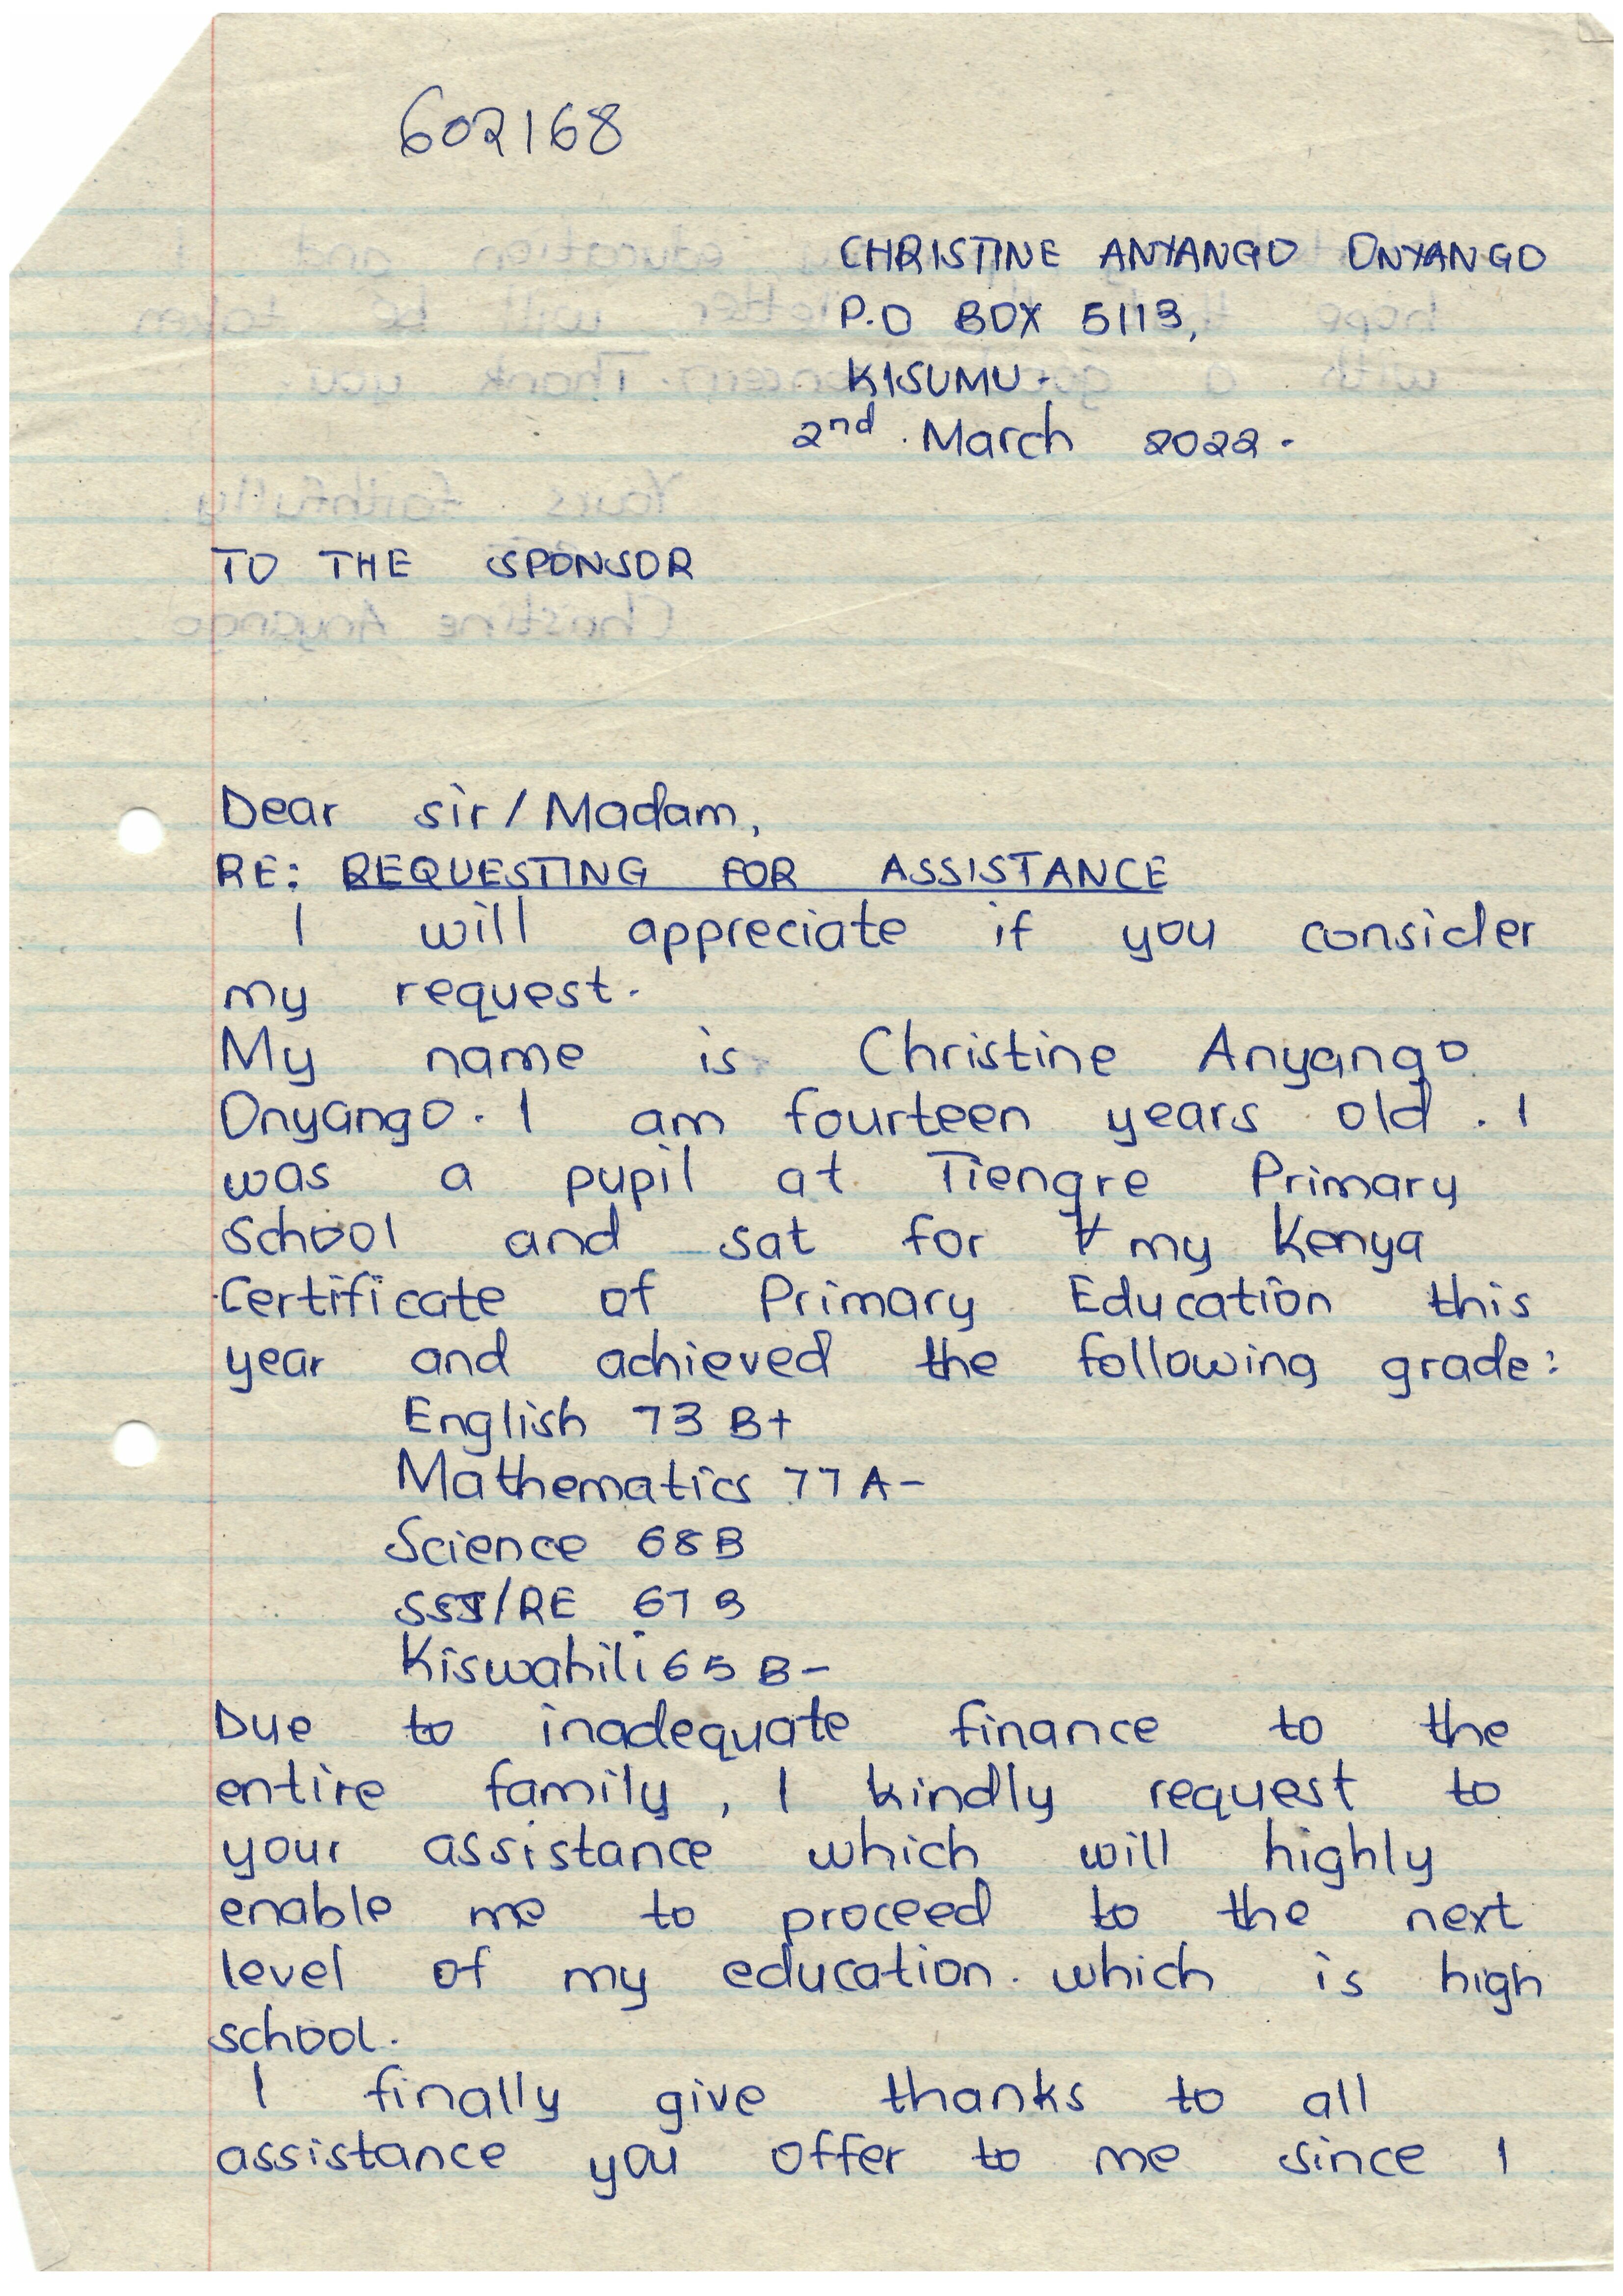 602168
CHRISTINE ANYANGO ONYANGO
P.O BOX 5113,
KISUMU.
2nd. March 2022.
TO THE SPONSOR
Dear sir/Madam,
RE: REQUESTING FOR ASSISTANCE
I will appreciate if you consider
my request.
My name is Christine Anyango
Onyango. I am fourteen years old. I
was a pupil at Tiengre Primary
School and sat for my Kenya
Certificate of Primary Education this
year and achieved the following grade:
English 73 B+
Mathematics 77 A-
Science 68 B
SST/RE 67 B
Kiswahili 65 B-
Due to inadequate finance to the
entire family, I kindly request to
your assistance which will highly
enable me to proceed to the next
level of my education. which is high
school.
I finally give thanks to all
assistance you offer to me since I